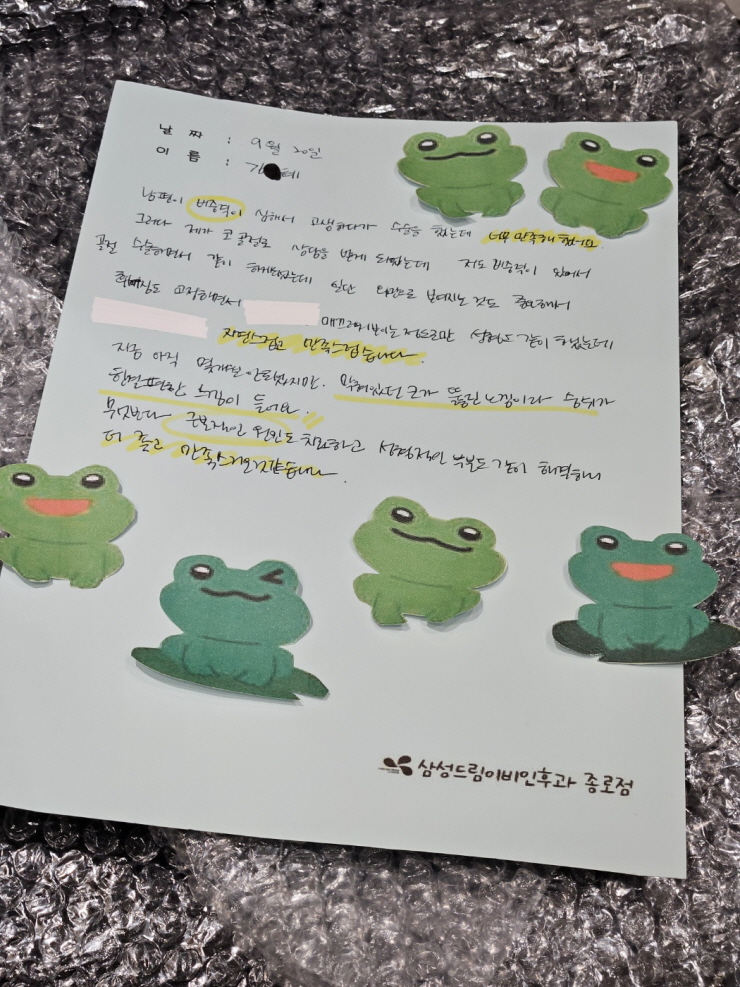 날 짜 : 9월 20일
이 름 : 김 혜
남편이 비중격이 심해서 고생하다가 수술을 했는데 너무 만족해 했어요
그러다 제가 코골절로 상담을 받게 되었는데 저도 비중격이 있어서
골절 수술하면서 같이 하게되었는데 일단 외관으로 보여지는 것도 중요해서
휘어짐도 교정하면서
매끄러워 보이는 정도로만 성형도 같이 하였는데
자연스럽고 만족스럽습니다.
지금 아직 몇개월 안되었지만, 막혀있던 코가 뚫린 느낌이라 숨쉬기
훨씬 편한 느낌이 들어요.
무엇보다 근본적인 원인도 치료하고 성형적인 부분도 같이 해결하니
더 좋고 만족스러운것같습니다.
삼성드림이비인후과 종로점